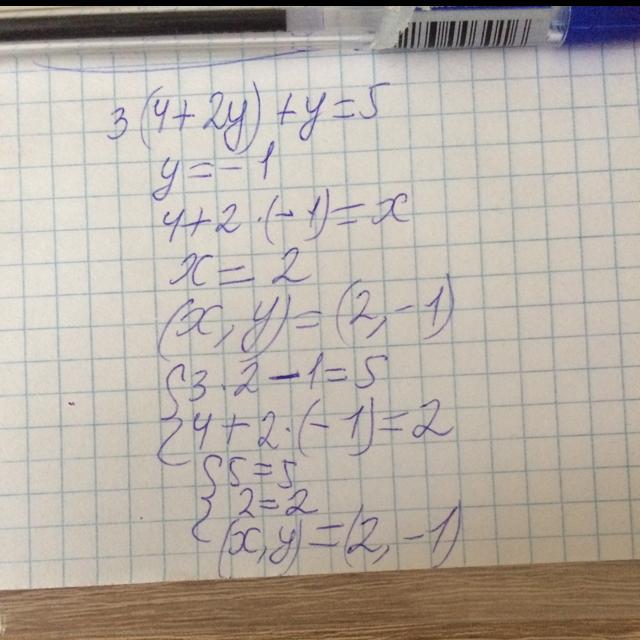 3(4+2y)+y=5
y=-1
4+2·(-1)=x
x=2
(x,y)=(2,-1)
{3·2-1=5
{4+2·(-1)=2
{5=5
{2=2
(x,y)=(2,-1)